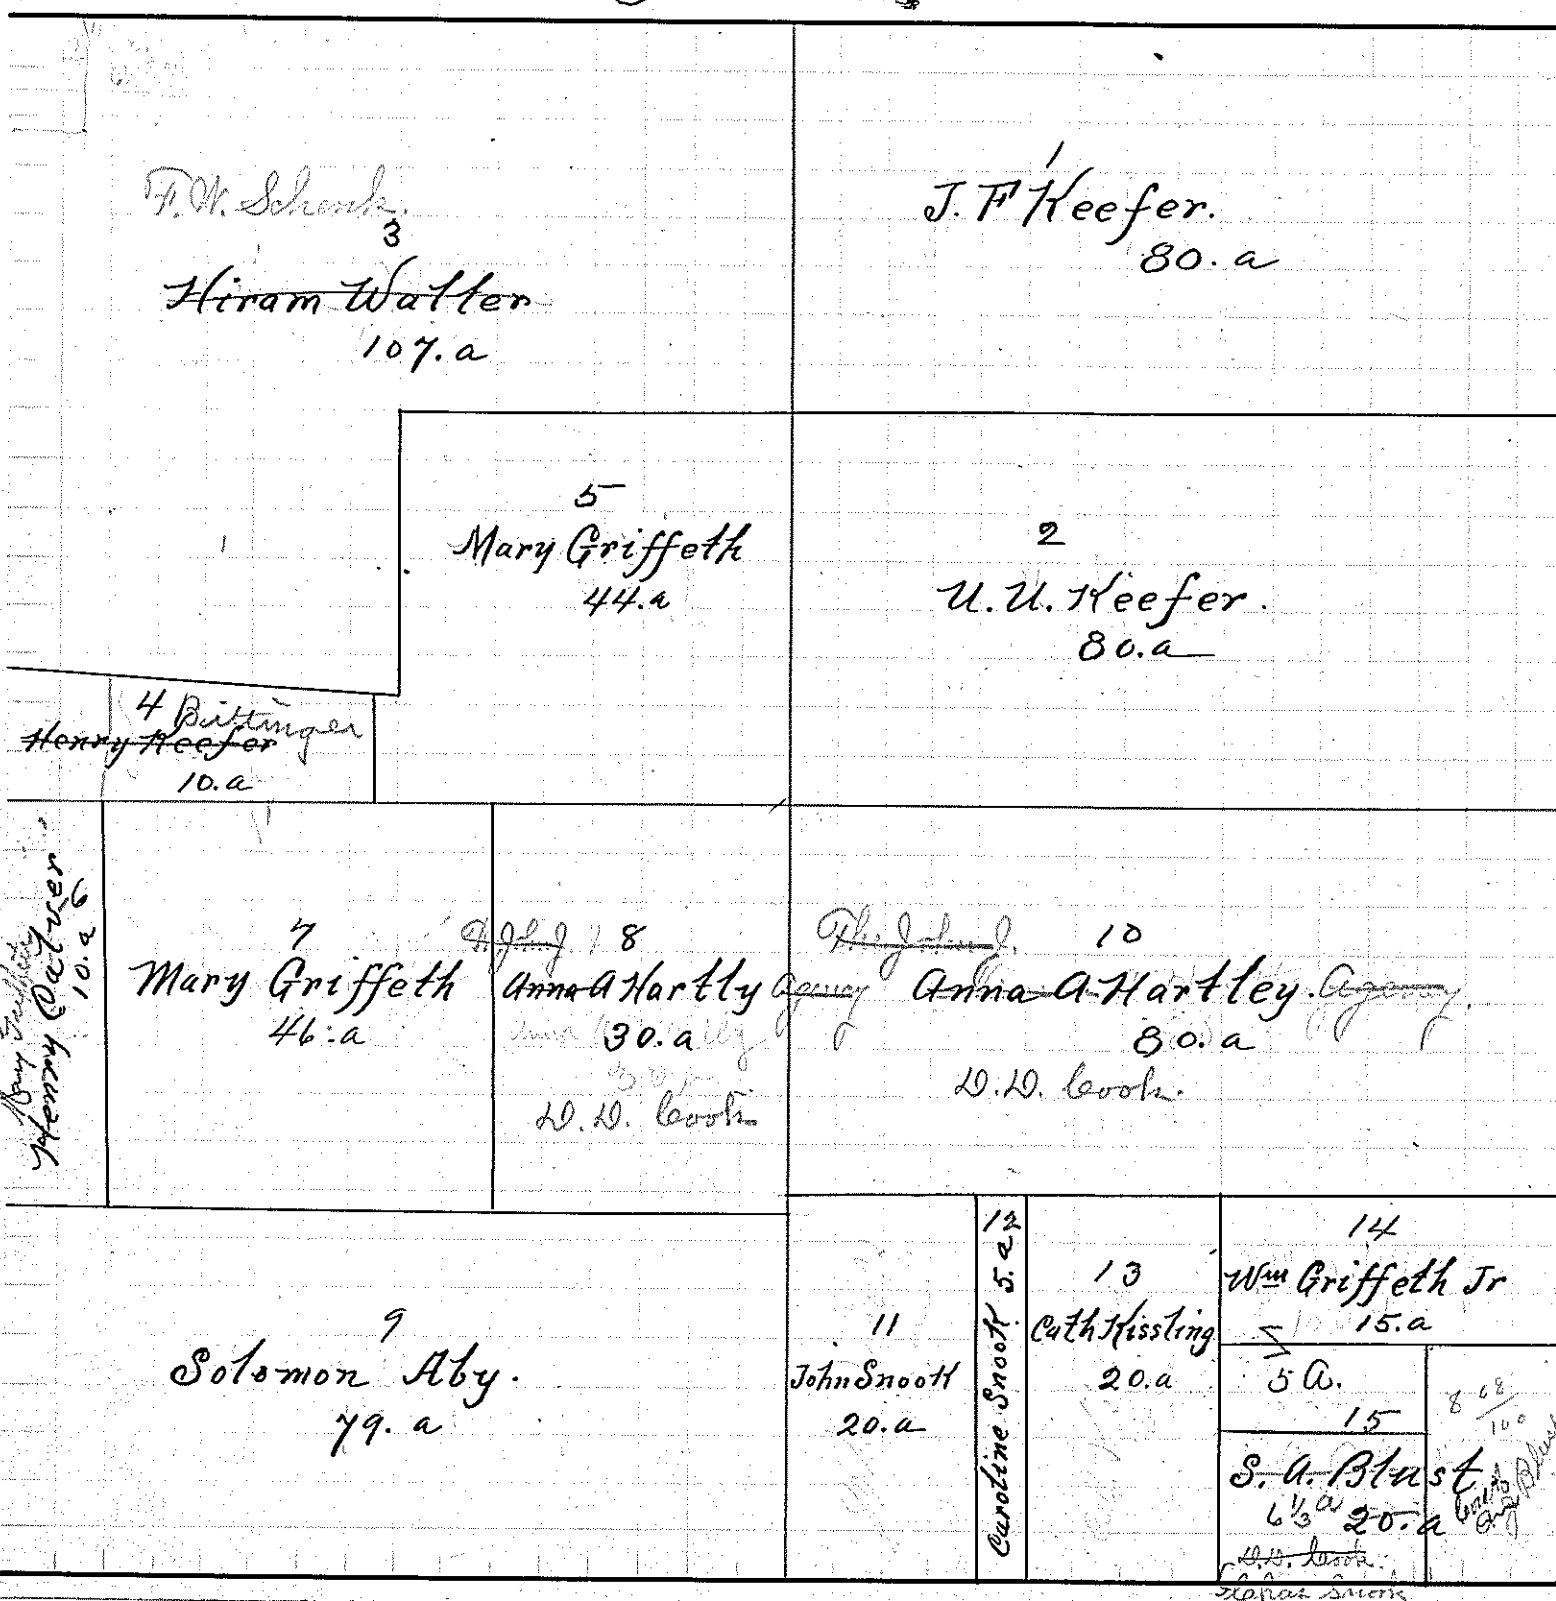 F. W. Schenk.
3
Hiram Walter
107. a
1
J. F Keefer.
80. a
5
Mary Griffeth
44. a
2
U. U. Keefer.
80. a
4 Bittinger
Henry Keefer
10. a
6
10. a
7
Mary Griffeth
46. a
8
Anna A Hartly Agency
30. a
D. D. Cook
The John J. 10
Anna A Hartley. Agency.
80. a
D. D. Cook.
9
Solomon Aby.
79. a
11
John Snook
20. a
12
Caroline Snook 5. a
13
Cath Kissling
20. a
14
Wm Griffeth Jr
15. a
5 A.
15
8 68/100
S. A. Blust
6 1/3 a 20. a
D. D. Cook
Snook